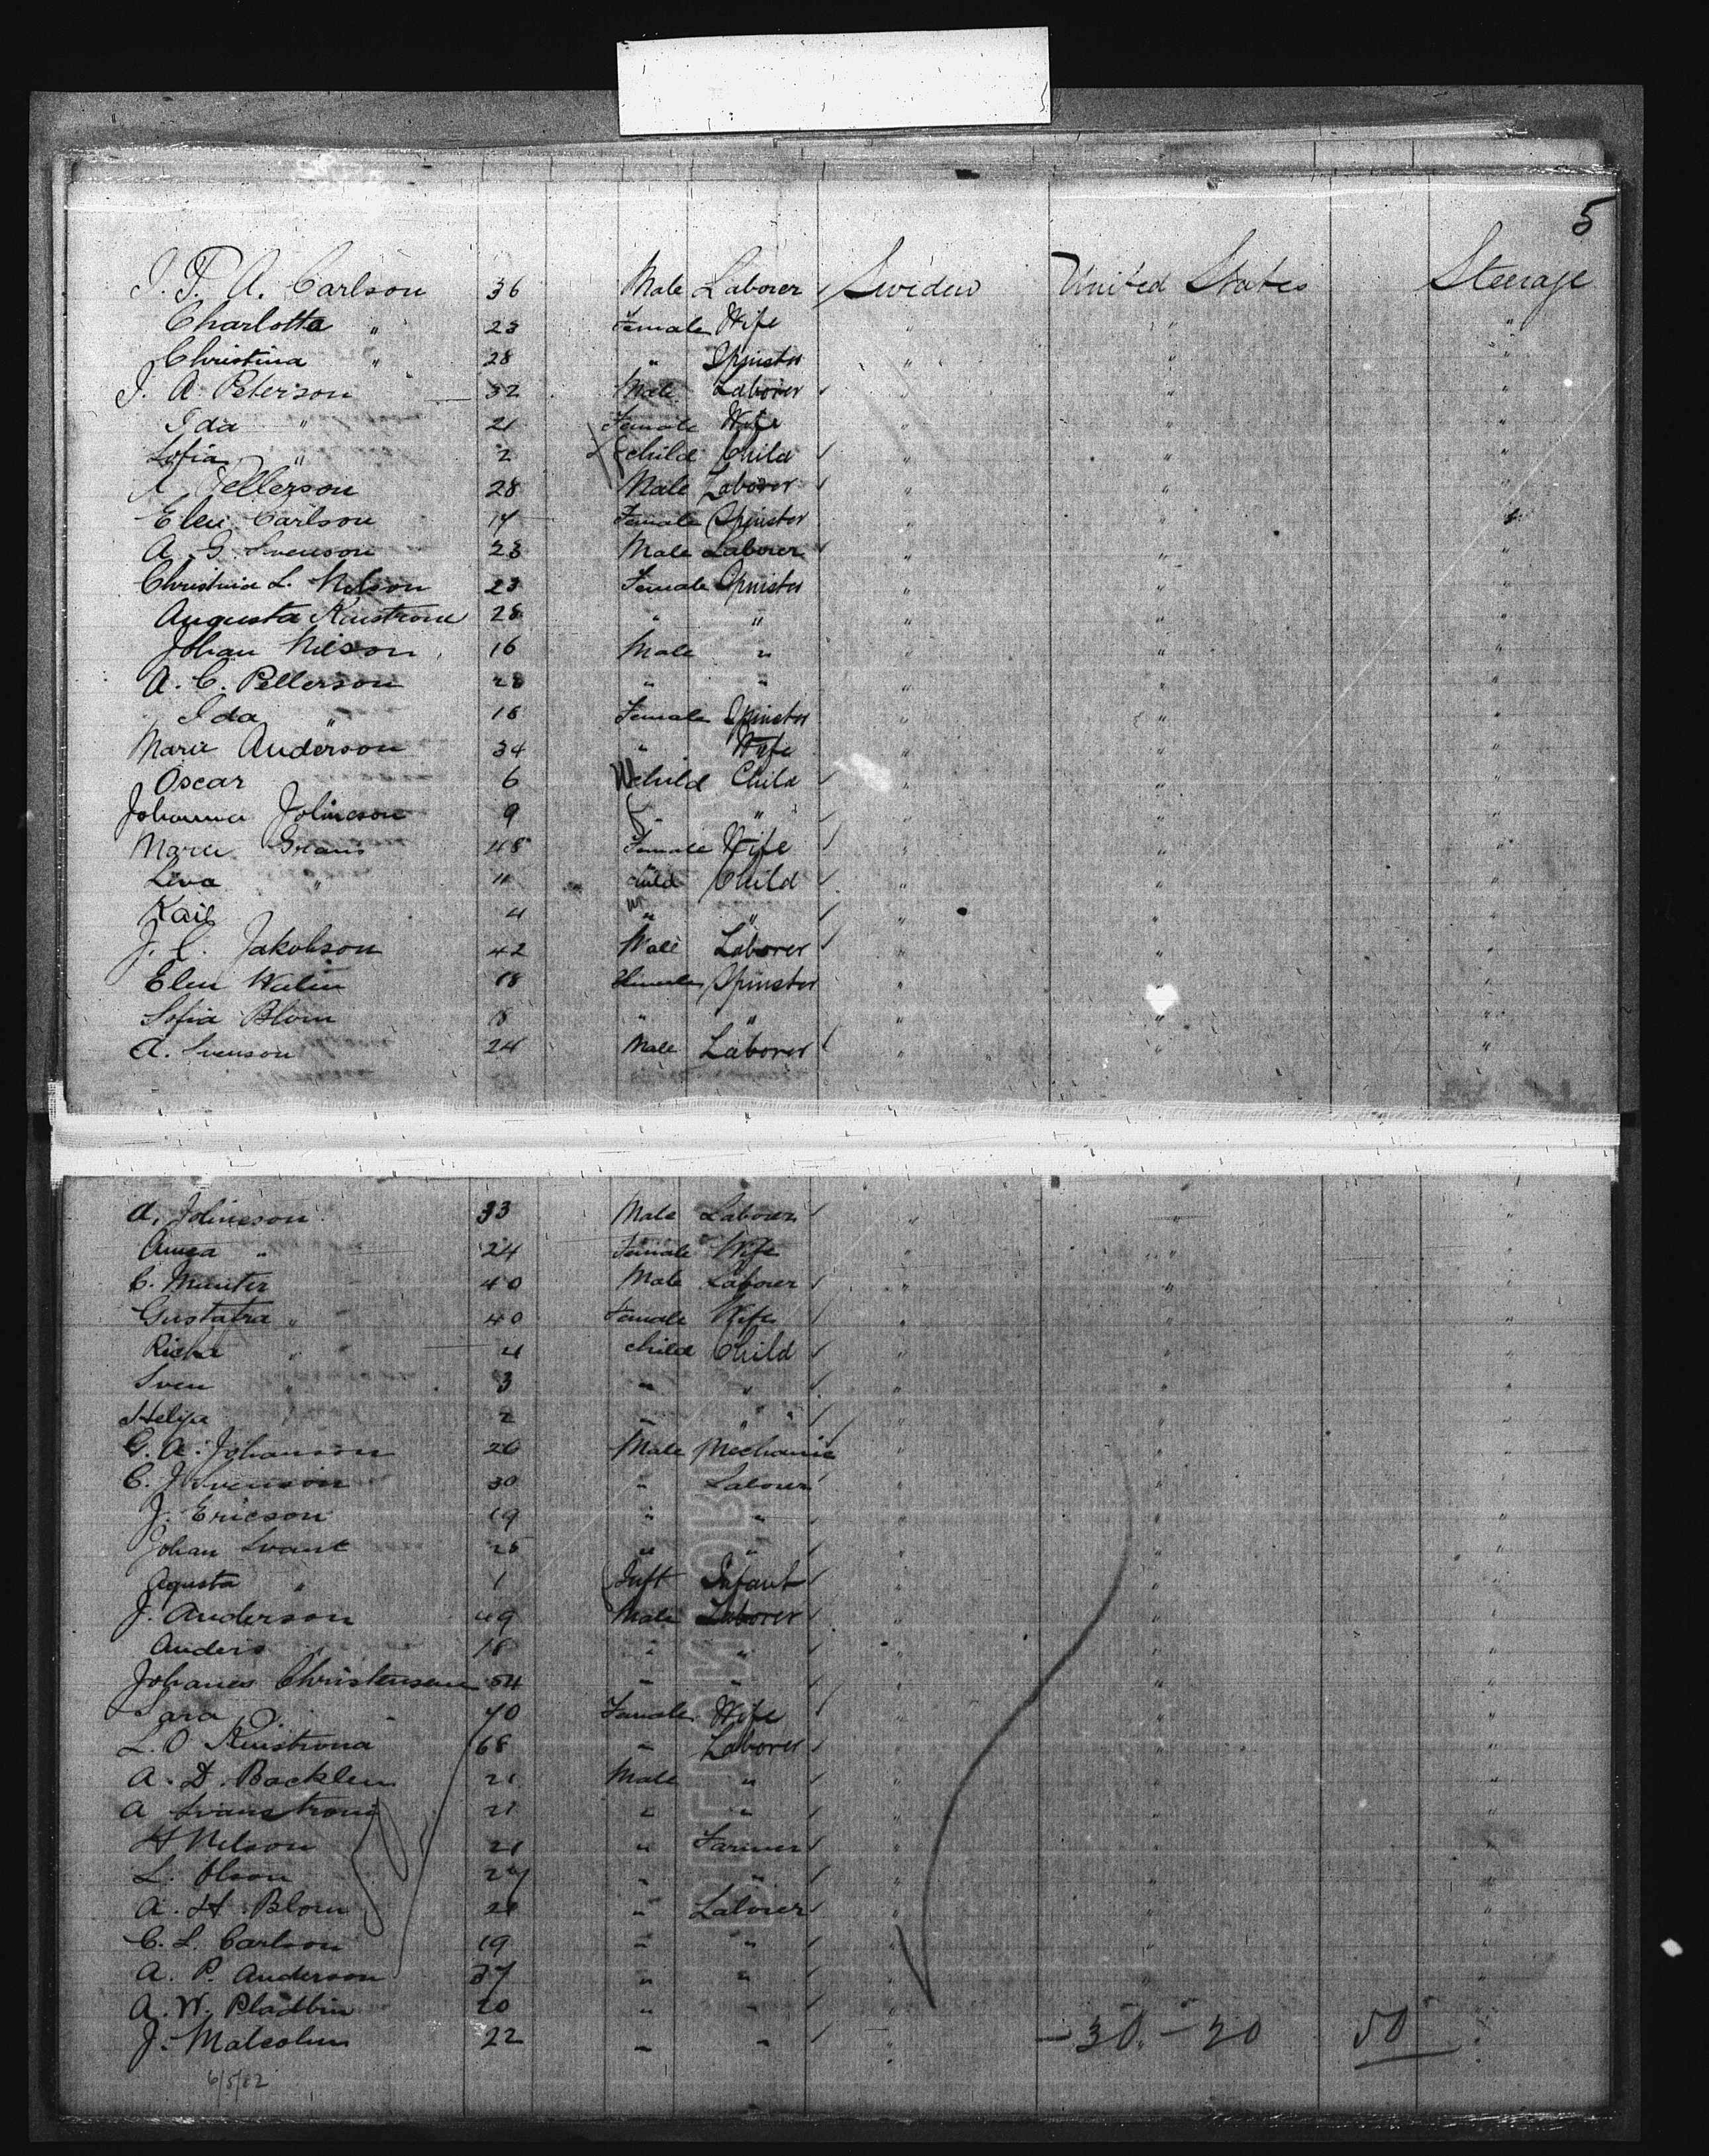 5
J. P. A. Carlson 36 Male Laborer Sweden United States Steerage
Charlotta " 23 Female Wife " " "
Christina " 28 " Spinster " " "
J. A. Peterson 32 Male Laborer " " "
Ida " 21 Female Wife " " "
Sofia " 2 child Child " " "
A. Pellerson 28 Male Laborer " " "
Elen Carlson 17 Female Spinster " " "
A. G. Svenson 23 Male Laborer " " "
Christina L. Nelson 23 Female Spinster " " "
Augusta 28 " " " " "
Johan Nilson 16 Male " " " "
A. C. Pellerson " " " " "
Ida " 18 Female Spinster " " "
Maria Anderson 34 " Wife " " "
Oscar 6 child Child " " "
Johanna Johneson 9 " " " " "
Maria 48 Female Wife " " "
Lena " 11 child Child " " "
4 " " " " "
J. C. Jakobson 42 Male Laborer " " "
Elen Walin 18 Female Spinster " " "
Sofia Blom 18 " " " " "
A. Svenson 24 Male Laborer " " "
A. Johneson 33 Male Laborer " " "
Anna " 24 Female Wife " " "
C. Munter 40 Male Laborer " " "
" 40 Female Wife " " "
" 4 child Child " " "
Sven " 3 " " " " "
2 " " " " "
G. A. Johanson 26 Male Mechanic " " "
C. J. Svenson 30 " Laborer " " "
J. Ericson 19 " " " " "
Johan Svant 25 " " " " "
Agusta " 1 Inft Infant " " "
J. Anderson 49 Male Laborer " " "
Anders 18 " " " " "
Johanes Christensen 54 " " " " "
Sara " Female Wife " " "
L. O. 68 " Laborer " " "
A. D. Backlen 21 Male " " " "
A Svanstrom 21 " " " " "
H Nelson 21 " Farmer " " "
L. Olson 27 " " " " "
A. H. Blom 21 " Laborer " " "
C. L. Carlson 19 " " " " "
A. P. Anderson 37 " " " " "
A. W. 20 " " " " "
J. Malcolm 22 " " " - 30 - 20 50 "
6/5/82